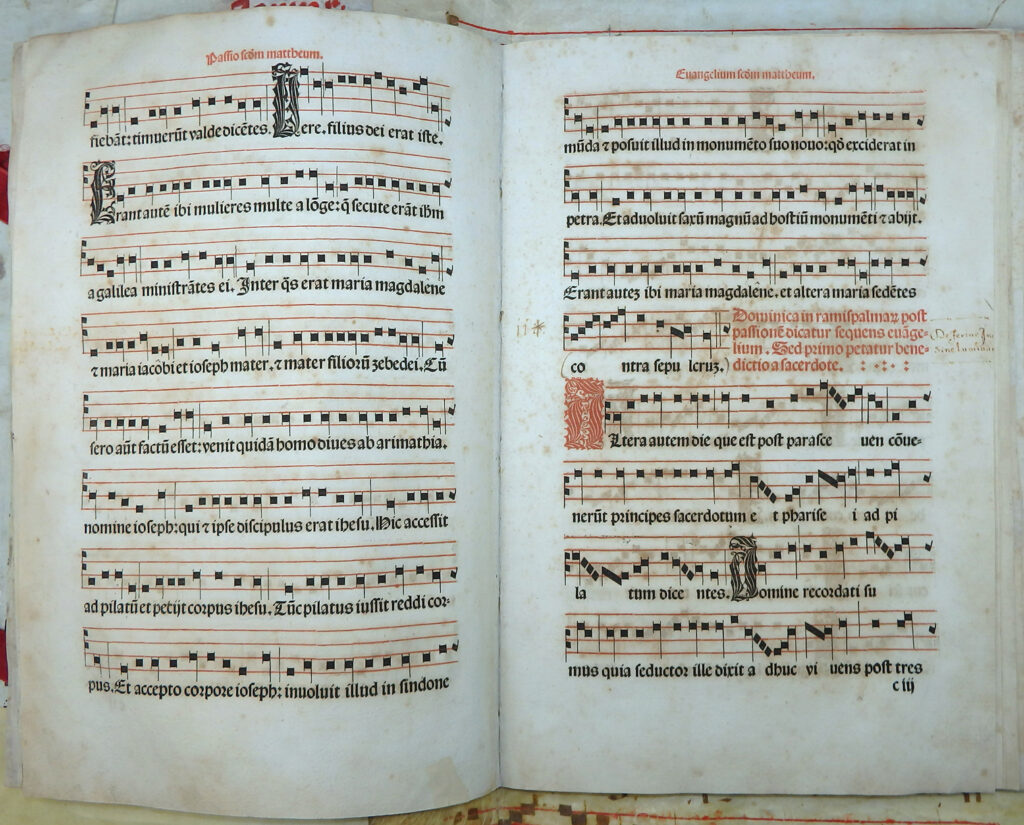 Passio scďm mattheum.
fiebāt: timuerūt valde dicētes. Uere. filius dei erat iste.
Erant autē ibi mulieres multe a lōge: q̄ secute erāt ihm
a galilea ministrātes ei. Inter q̄s erat maria magdalene
⁊ maria iacobi et ioseph mater. ⁊ mater filiorū zebedei. Cū
sero aūt factū esset: venit quidā homo diues ab arimathia.
nomine ioseph: qui ⁊ ipse discipulus erat ihesu. Hic accessit
ad pilatū et petijt corpus ihesu. Tūc pilatus iussit reddi cor-
pus. Et accepto corpore ioseph: inuoluit illud in sindone
Euangelium scďm mattheum.
mūda ⁊ posuit illud in monumēto suo nouo: qď exciderat in
petra. Et aduoluit saxū magnū ad hostiū monumēti ⁊ abijt.
Erant autez ibi maria magdalene. et altera maria sedētes
co ntra sepu lcruz.
Dominica in ramispalmaꝝ post
passionē dicatur sequens euāge-
lium. Sed primo petatur bene-
dictio a sacerdote.
Altera autem die que est post parasce uen cōue-
nerūt principes sacerdotum e t pharise i ad pi
la tum dice ntes. Domine recordati su
mus quia seductor ille dixit a dhuc vi uens post tres
c iij